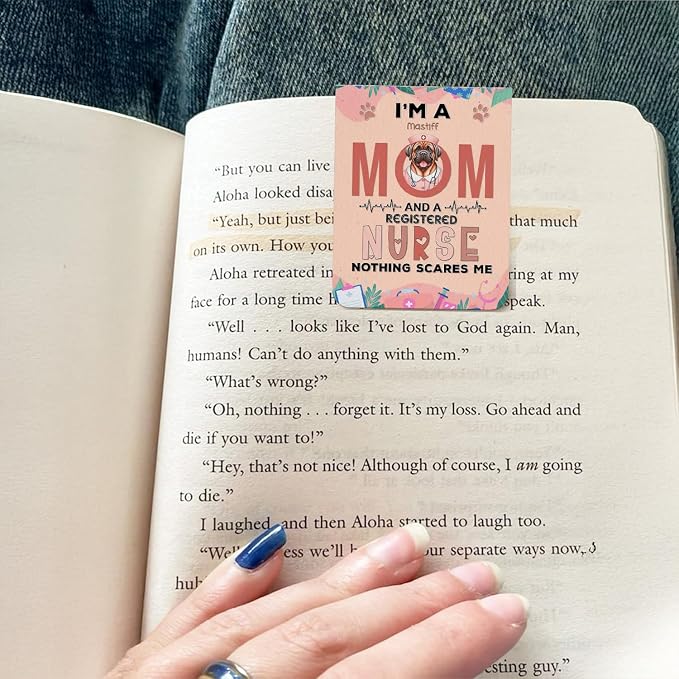 I'M A
mastiff
MOM
AND A
REGISTERED
NURSE
NOTHING SCARES ME
"But you can live
Aloha looked disa
"Yeah, but just bei that much
on its own. How you
Aloha retreated in ring at my
face for a long time h speak.
"Well . . . looks like I've lost to God again. Man,
humans! Can't do anything with them."
"What's wrong?"
"Oh, nothing . . . forget it. It's my loss. Go ahead and
die if you want to!"
"Hey, that's not nice! Although of course, I am going
to die."
I laughed, and then Aloha started to laugh too.
"Well ess we'll our separate ways now,
huh
esting guy."